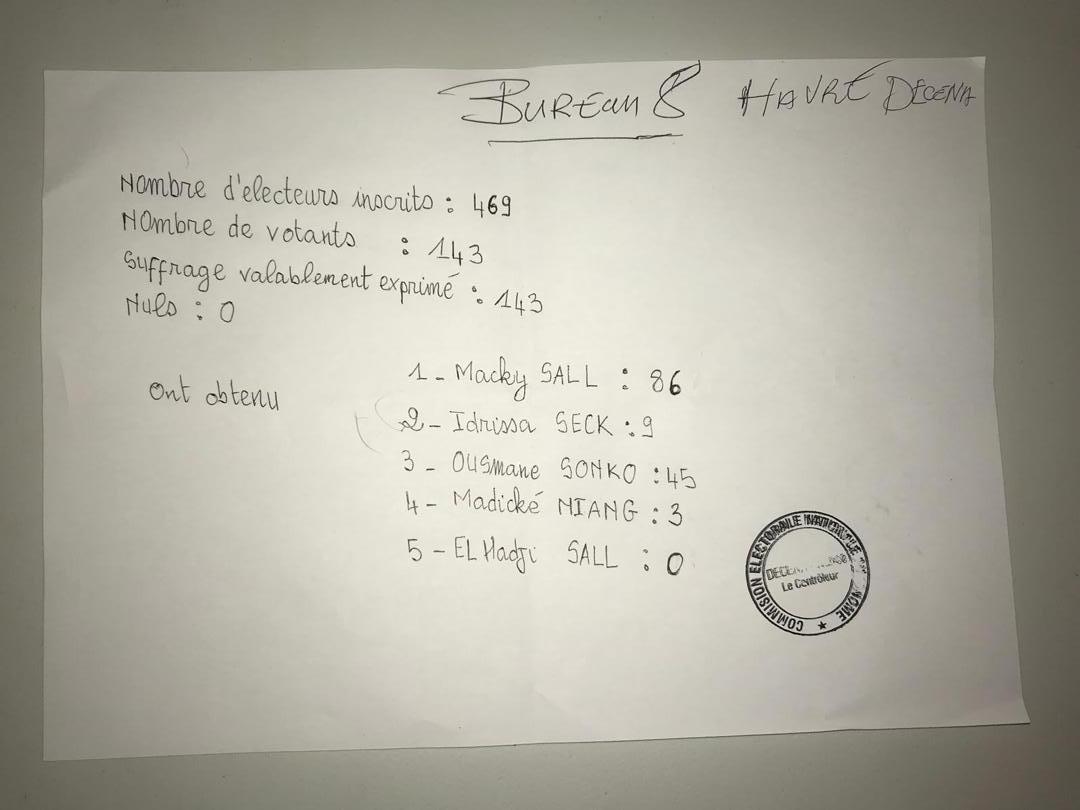 BUREAU 8 HAVRE DECENA
Nombre d'electeurs inscrits : 469
NOmbre de votants : 143
Suffrage valablement exprimé : 143
Nuls : 0
Ont obtenu
1 - Macky SALL : 86
2 - Idrissa SECK : 9
3 - OUSmane SONKO : 45
4 - Madické NIANG : 3
5 - EL Hadji SALL : 0
COMMISION ELECTORALE NATIONALE
NOME
Le Contrôleur